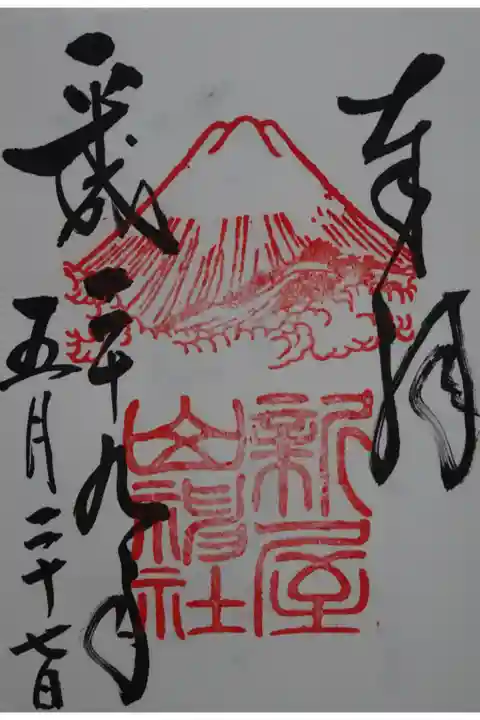 奉拝
新屋
山神社
平成
二十九年
五月二十七日